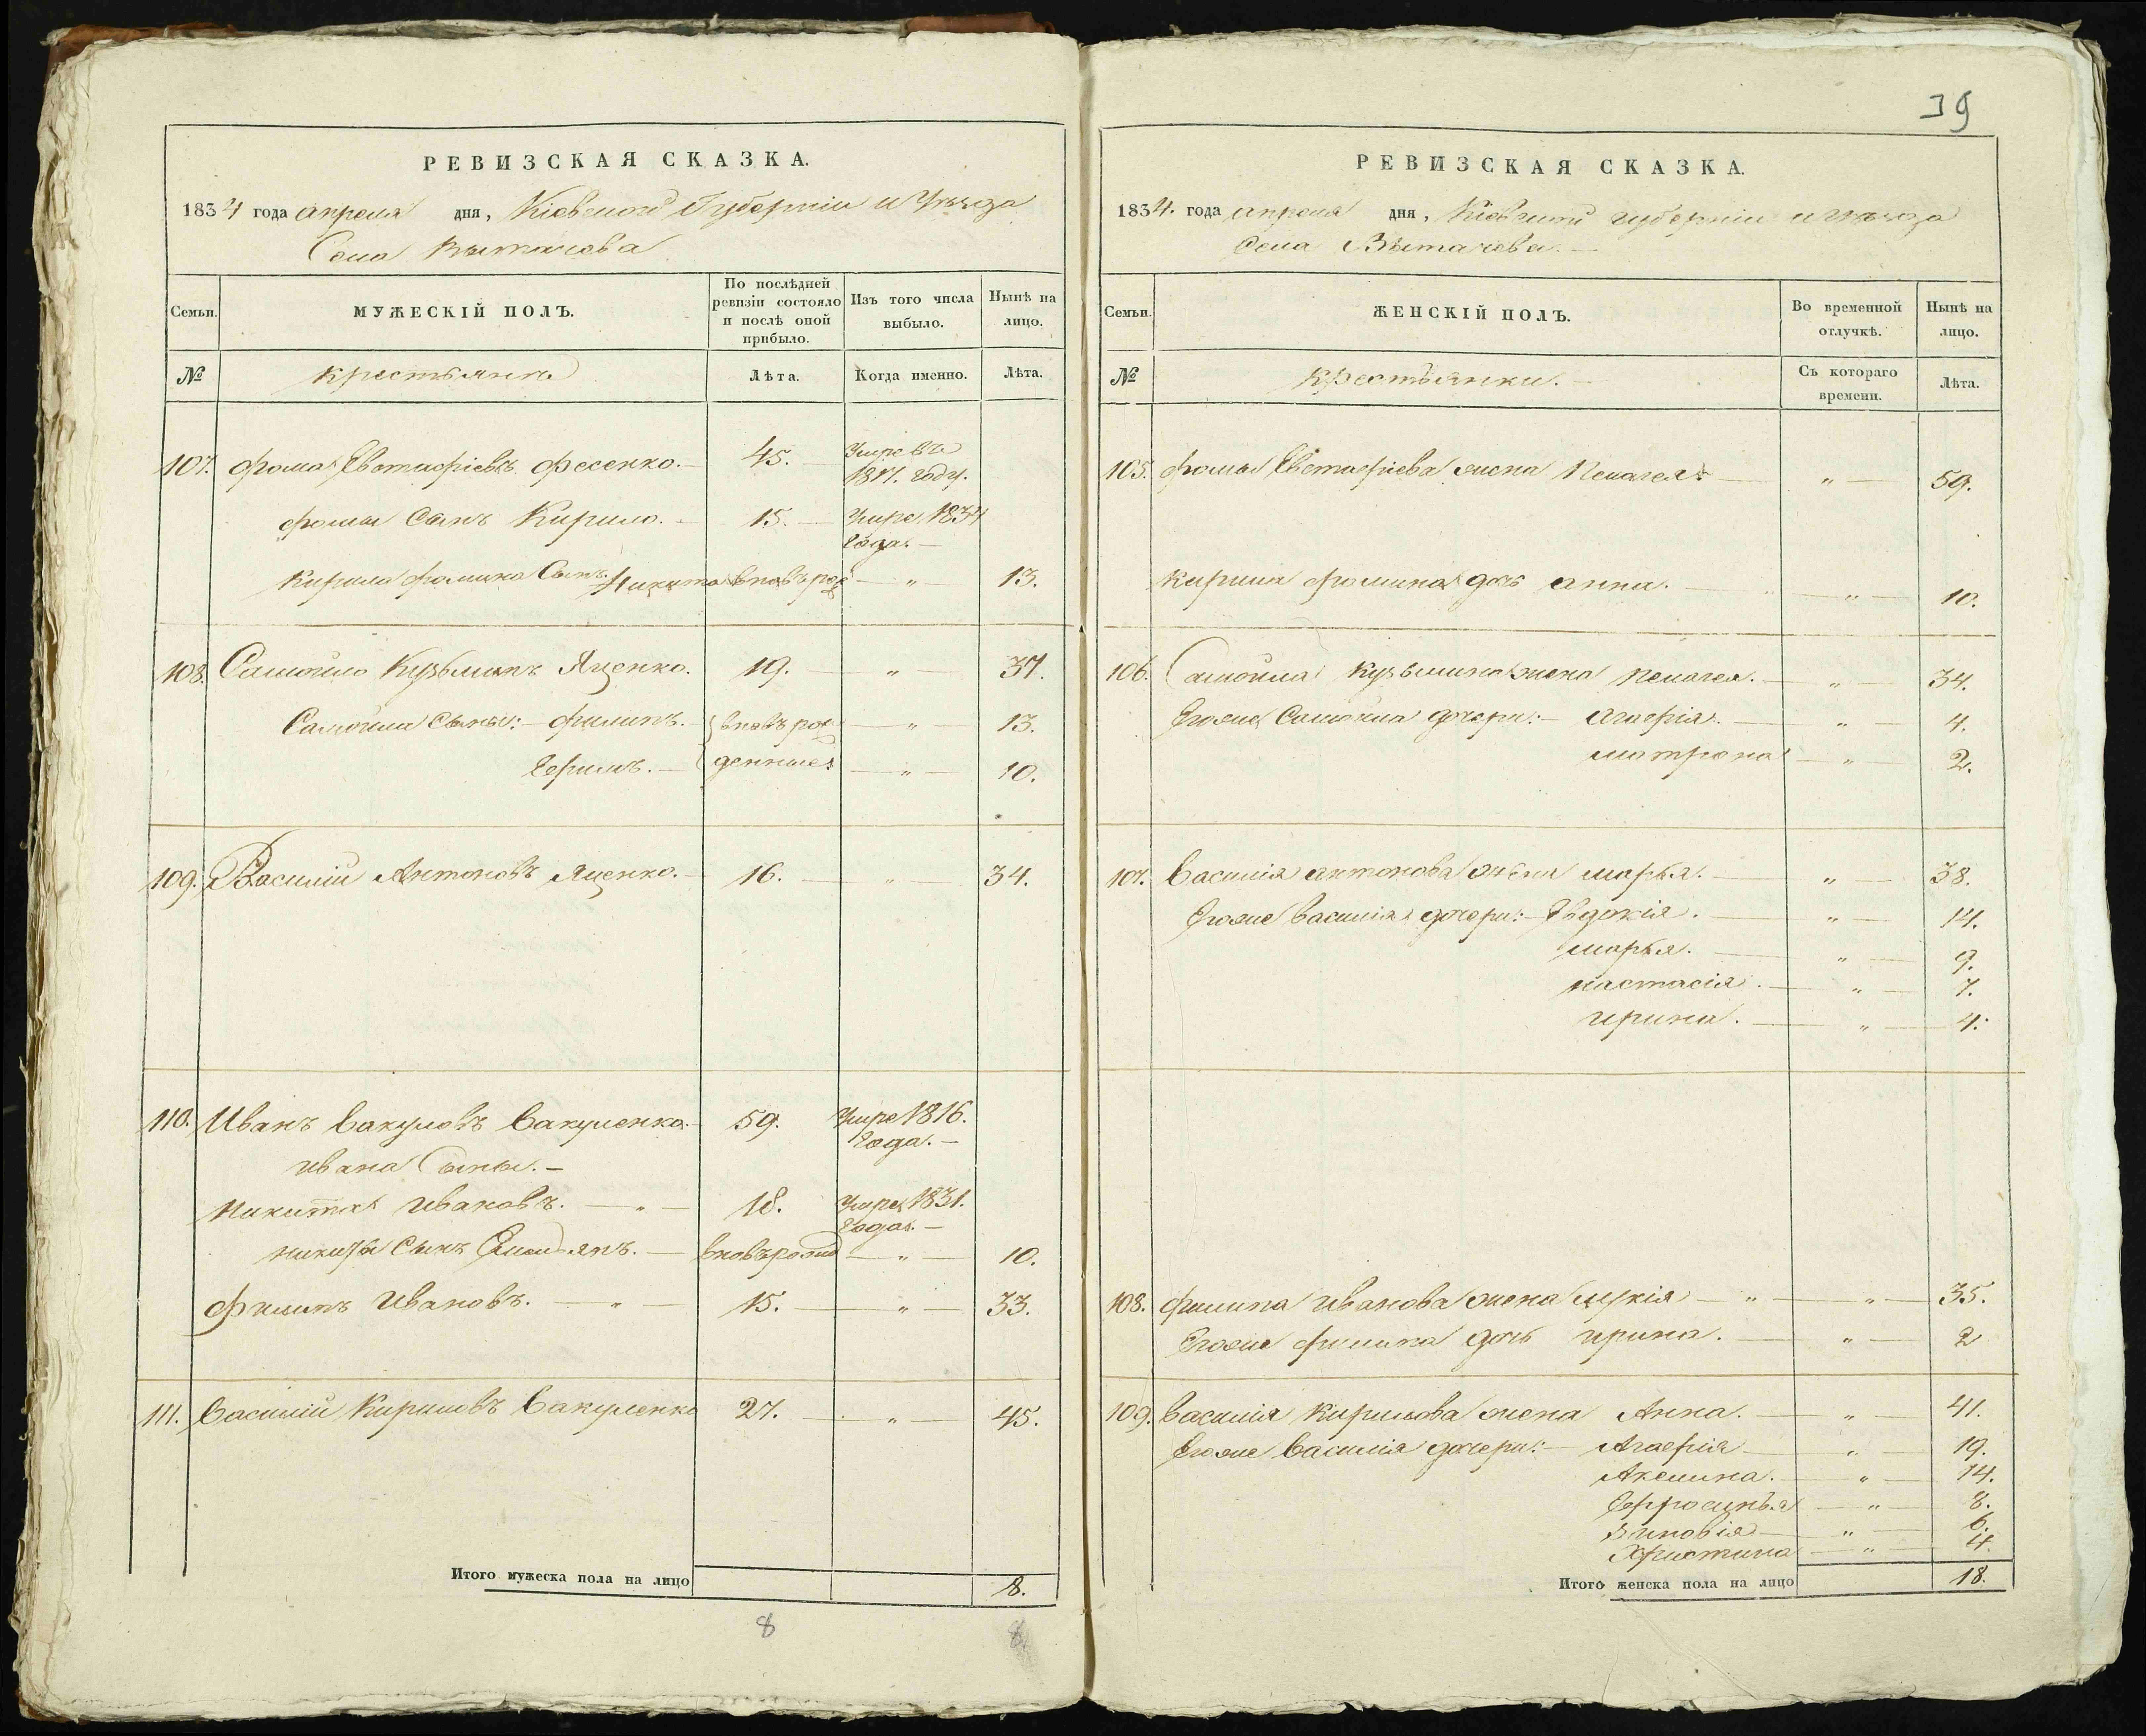 39
РЕВИЗСКАЯ СКАЗКА.
1834 года апреля дня, Кіевской Губерніи и Уѣзда
Села Вытачова
Семьи. МУЖЕСКІЙ ПОЛЪ. По послѣдней ревизіи состояло и послѣ оной прибыло. Изъ того числа выбыло. Нынѣ на лицо.
№ крестьяне Лѣта. Когда именно. Лѣта.
107. Фома Евстафіевъ Фесенко. 45. Умре въ
1817. году.
Фомы Сынъ Кирило. 15. Умре 1834
года.
Кирила Фомина Сынъ Никита вновь рож „ 13.
108. Самойло Кузьминъ Яценко. 19. „ 37.
Самойла Сыны: Филипъ. вновь рож „ 13.
Ефимъ. денные „ 10.
109. Василій Антоновъ Яценко. 16. „ 34.
110. Иванъ Вакуловъ Вакуленко. 59. Умре 1816.
года.
Ивана Сыны.
Никита Ивановъ. „ 18. Умре 1831.
года.
Никиты Сынъ Емельянъ. вновь рожд „ 10.
Филипъ Ивановъ. „ 15. „ 33.
111. Василій Кириловъ Вакуленко 27. „ 45.
Итого мужеска пола на лицо 8.
8 8
РЕВИЗСКАЯ СКАЗКА.
1834. года апреля дня, Кіевской губерніи и уѣзда
Села Вытачева.
Семьи. ЖЕНСКІЙ ПОЛЪ. Во временной отлучкѣ. Нынѣ на лицо.
№ Крестьянки. Съ котораго времени. Лѣта.
105. Фомы Евстафіева жена Пелагея „ 59.
Кирила Фомина дочь анна. „ 10.
106. Самойла Кузьмина жена Пелагея. „ 34.
Егоже Самойла дочери: Агафія. „ 4.
матрона „ 2.
107. Василія антонова жена марья. „ 38.
Егоже василія дочери: Евдокія. „ 14.
марья. „ 9.
настасія. „ 7.
ирина. „ 4.
108. Филипа Иванова жена Лукія „ „ 35.
Егоже филипа дочь ирина. „ 2
109. Василія Кирилова жена Анна. „ 41.
Егоже Василія дочери: Агафія „ 19.
Акелина. „ 14.
Ефросинья „ 8.
Зиновія „ 6.
Христина „ 4.
Итого женска пола на лицо 18.